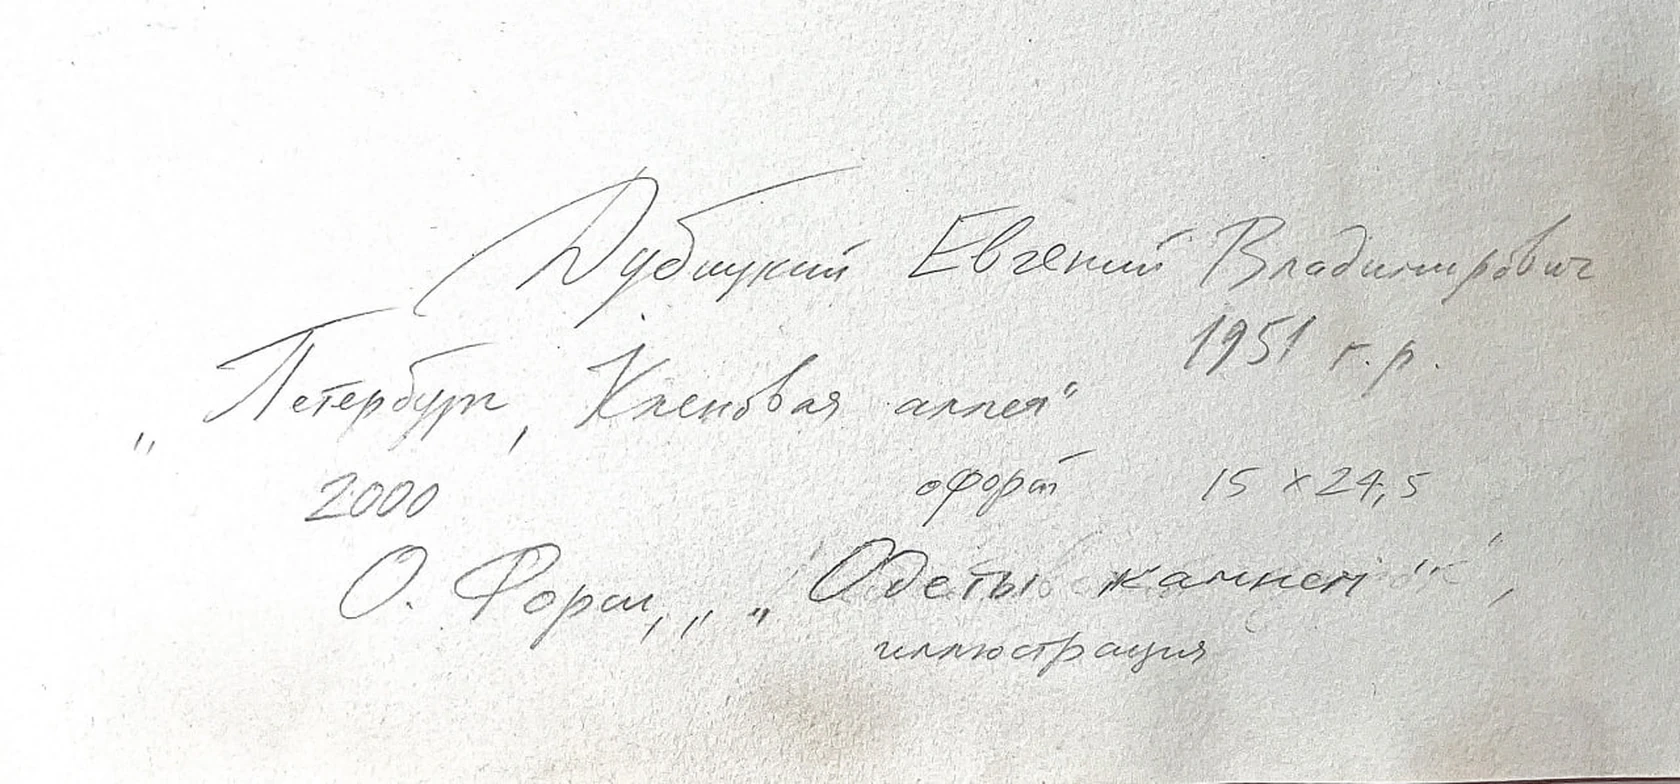 Дубицкий Евгений Владимирович
1951 г.р.
„Петербург, Кленовая аллея"
2000 офорт 15 x 24,5
О. Форш, „Одеты камнем",
иллюстрация